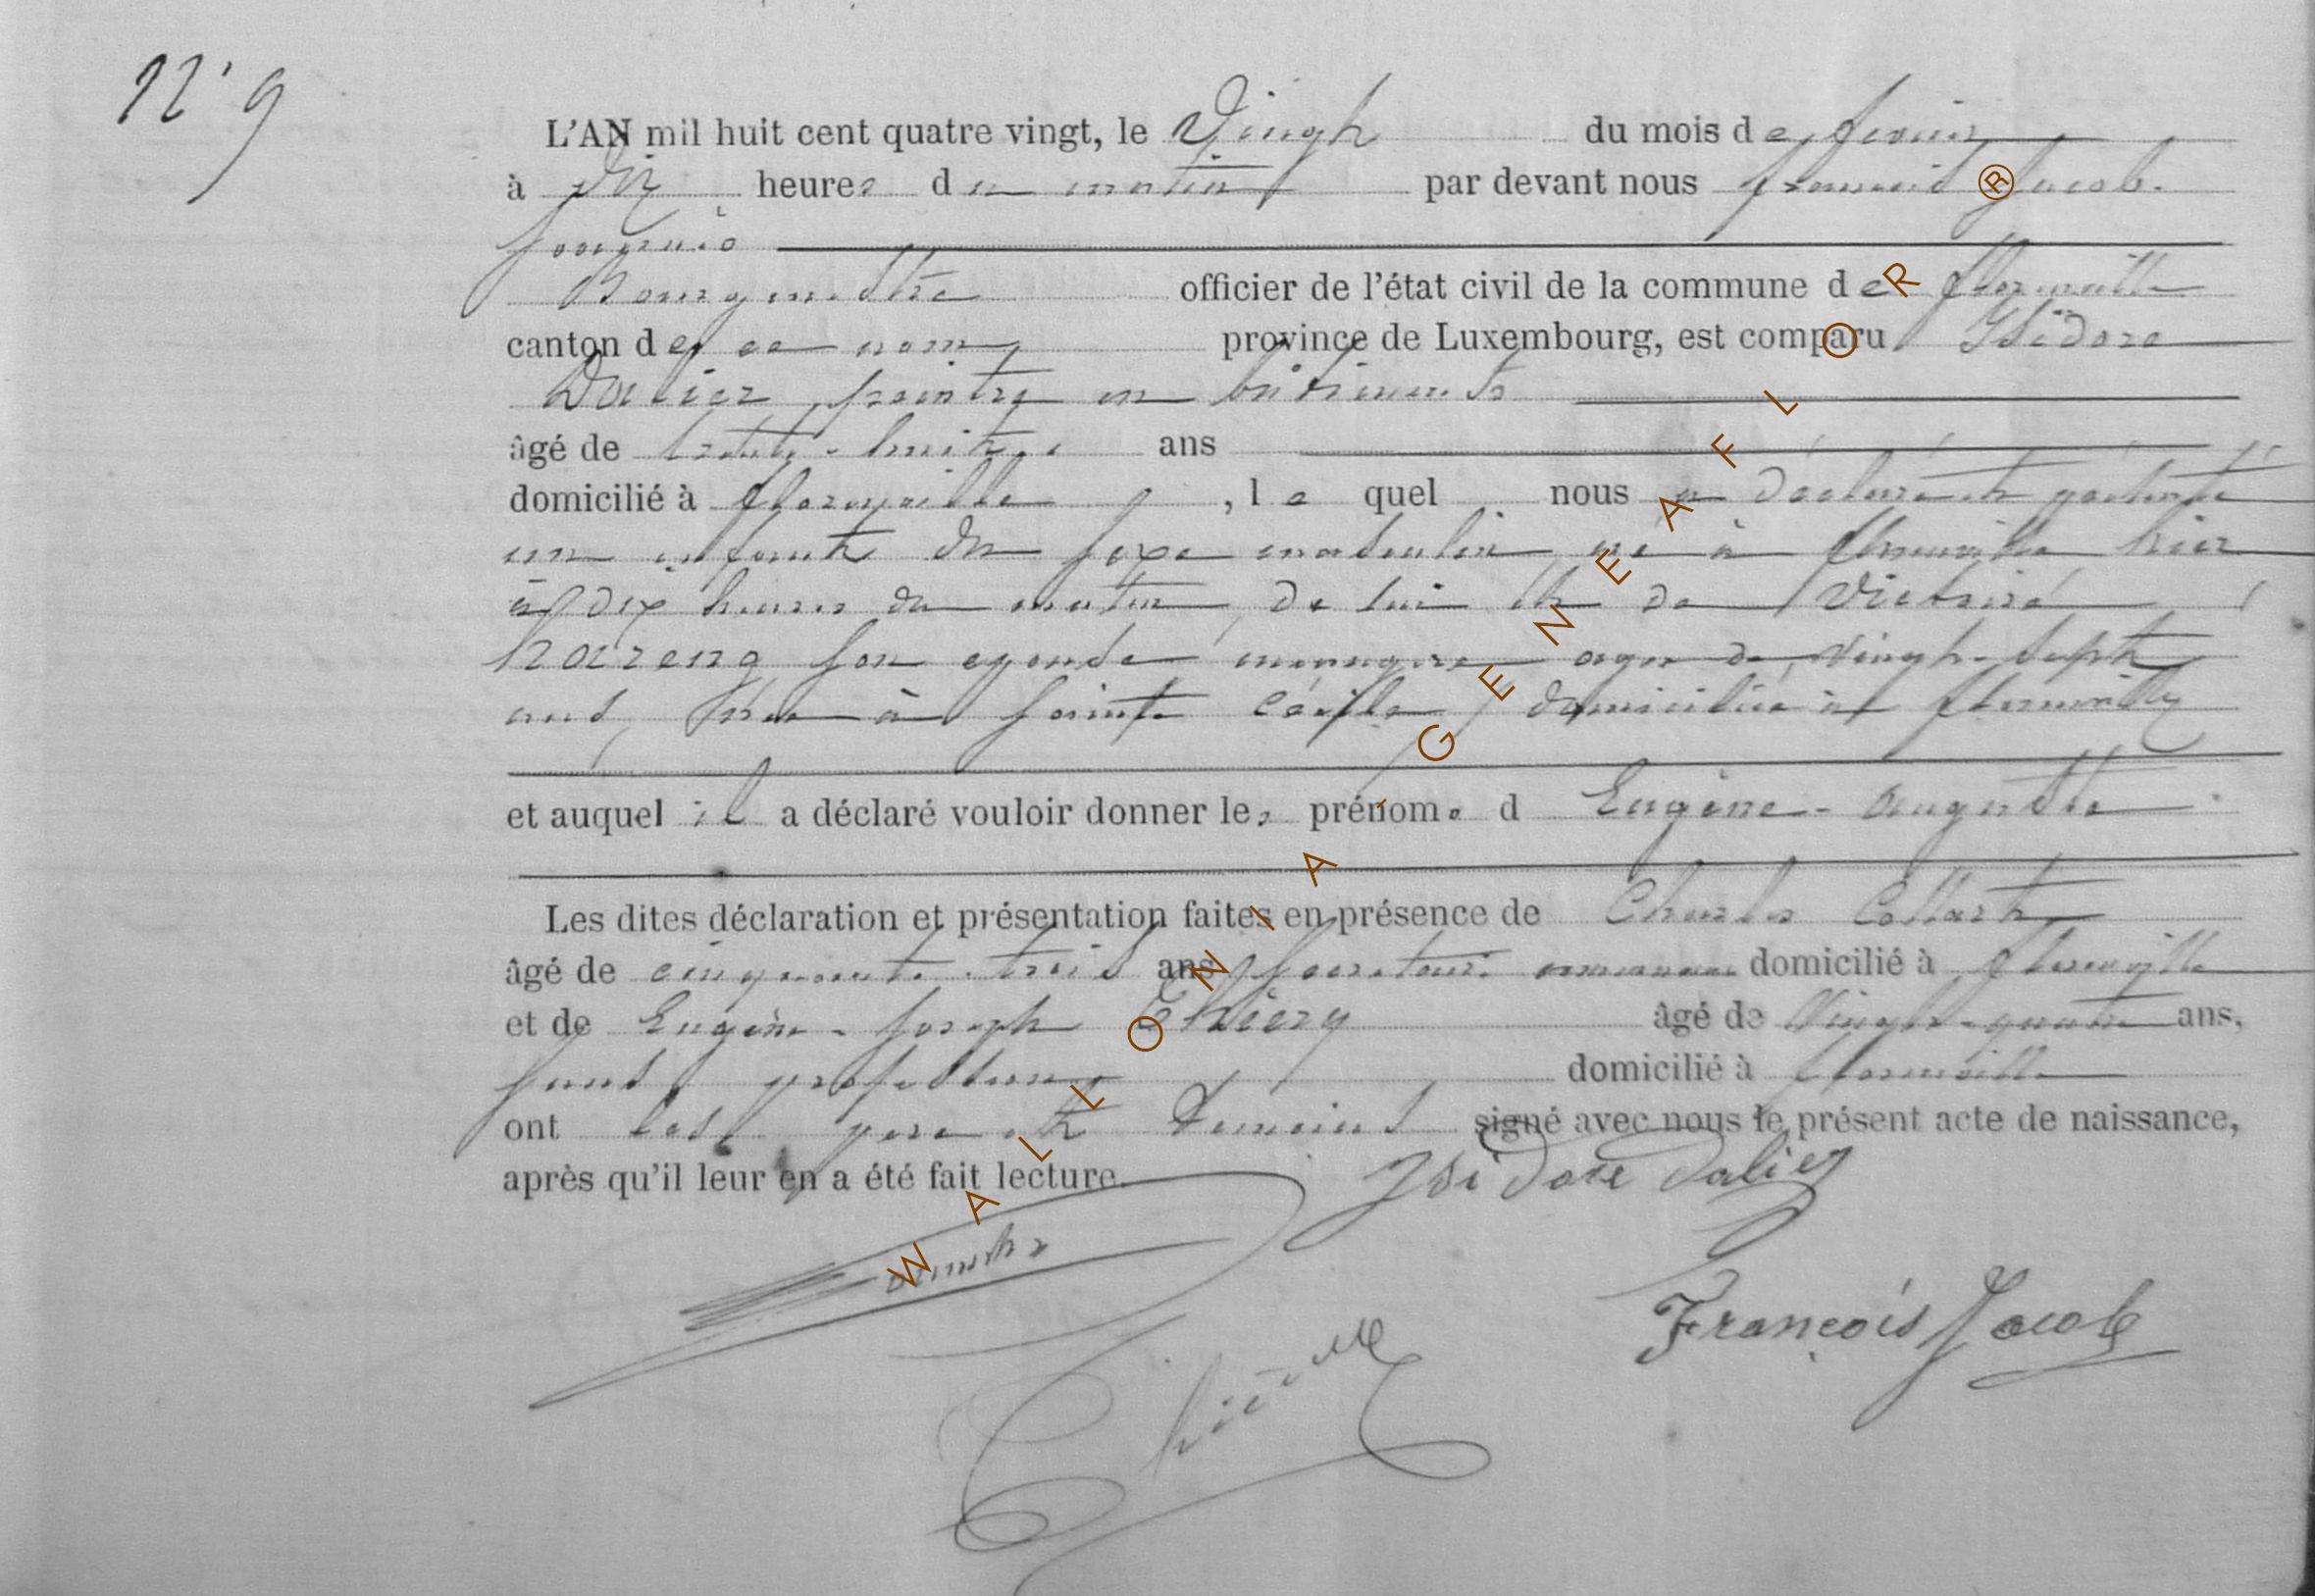 N° 9
L'AN mil huit cent quatre vingt, le Vingt du mois de fevrier
à dix heures du matin par devant nous francois Jacob
Bourgmestre officier de l'état civil de la commune de florenville
canton de ce nom province de Luxembourg, est comparu Isidore
Dalier, peintre en bâtiments
âgé de trente-huit ans
domicilié à florenville, le quel nous a déclaré et présenté
un enfant du sexe masculin, né à florenville hier
à dix heures du matin, de lui et de Victoire
hareng son epouse menagere agee de vingt-sept
ans, née à Sainte Cécile, domiciliée à florenville
et auquel il a déclaré vouloir donner les prénoms d Eugène-Auguste
Les dites déclaration et présentation faites en présence de Charles Collart
âgé de cinquante-trois ans secretaire communal domicilié à florenville
et de Eugène-Joseph Thiery âgé de Vingt-quatre ans,
sans profession domicilié à florenville
ont les pere et temoins signé avec nous le présent acte de naissance,
après qu'il leur en a été fait lecture.
Isidore Dalier
François Jacob
WALLONIA GENEAFLOR ®